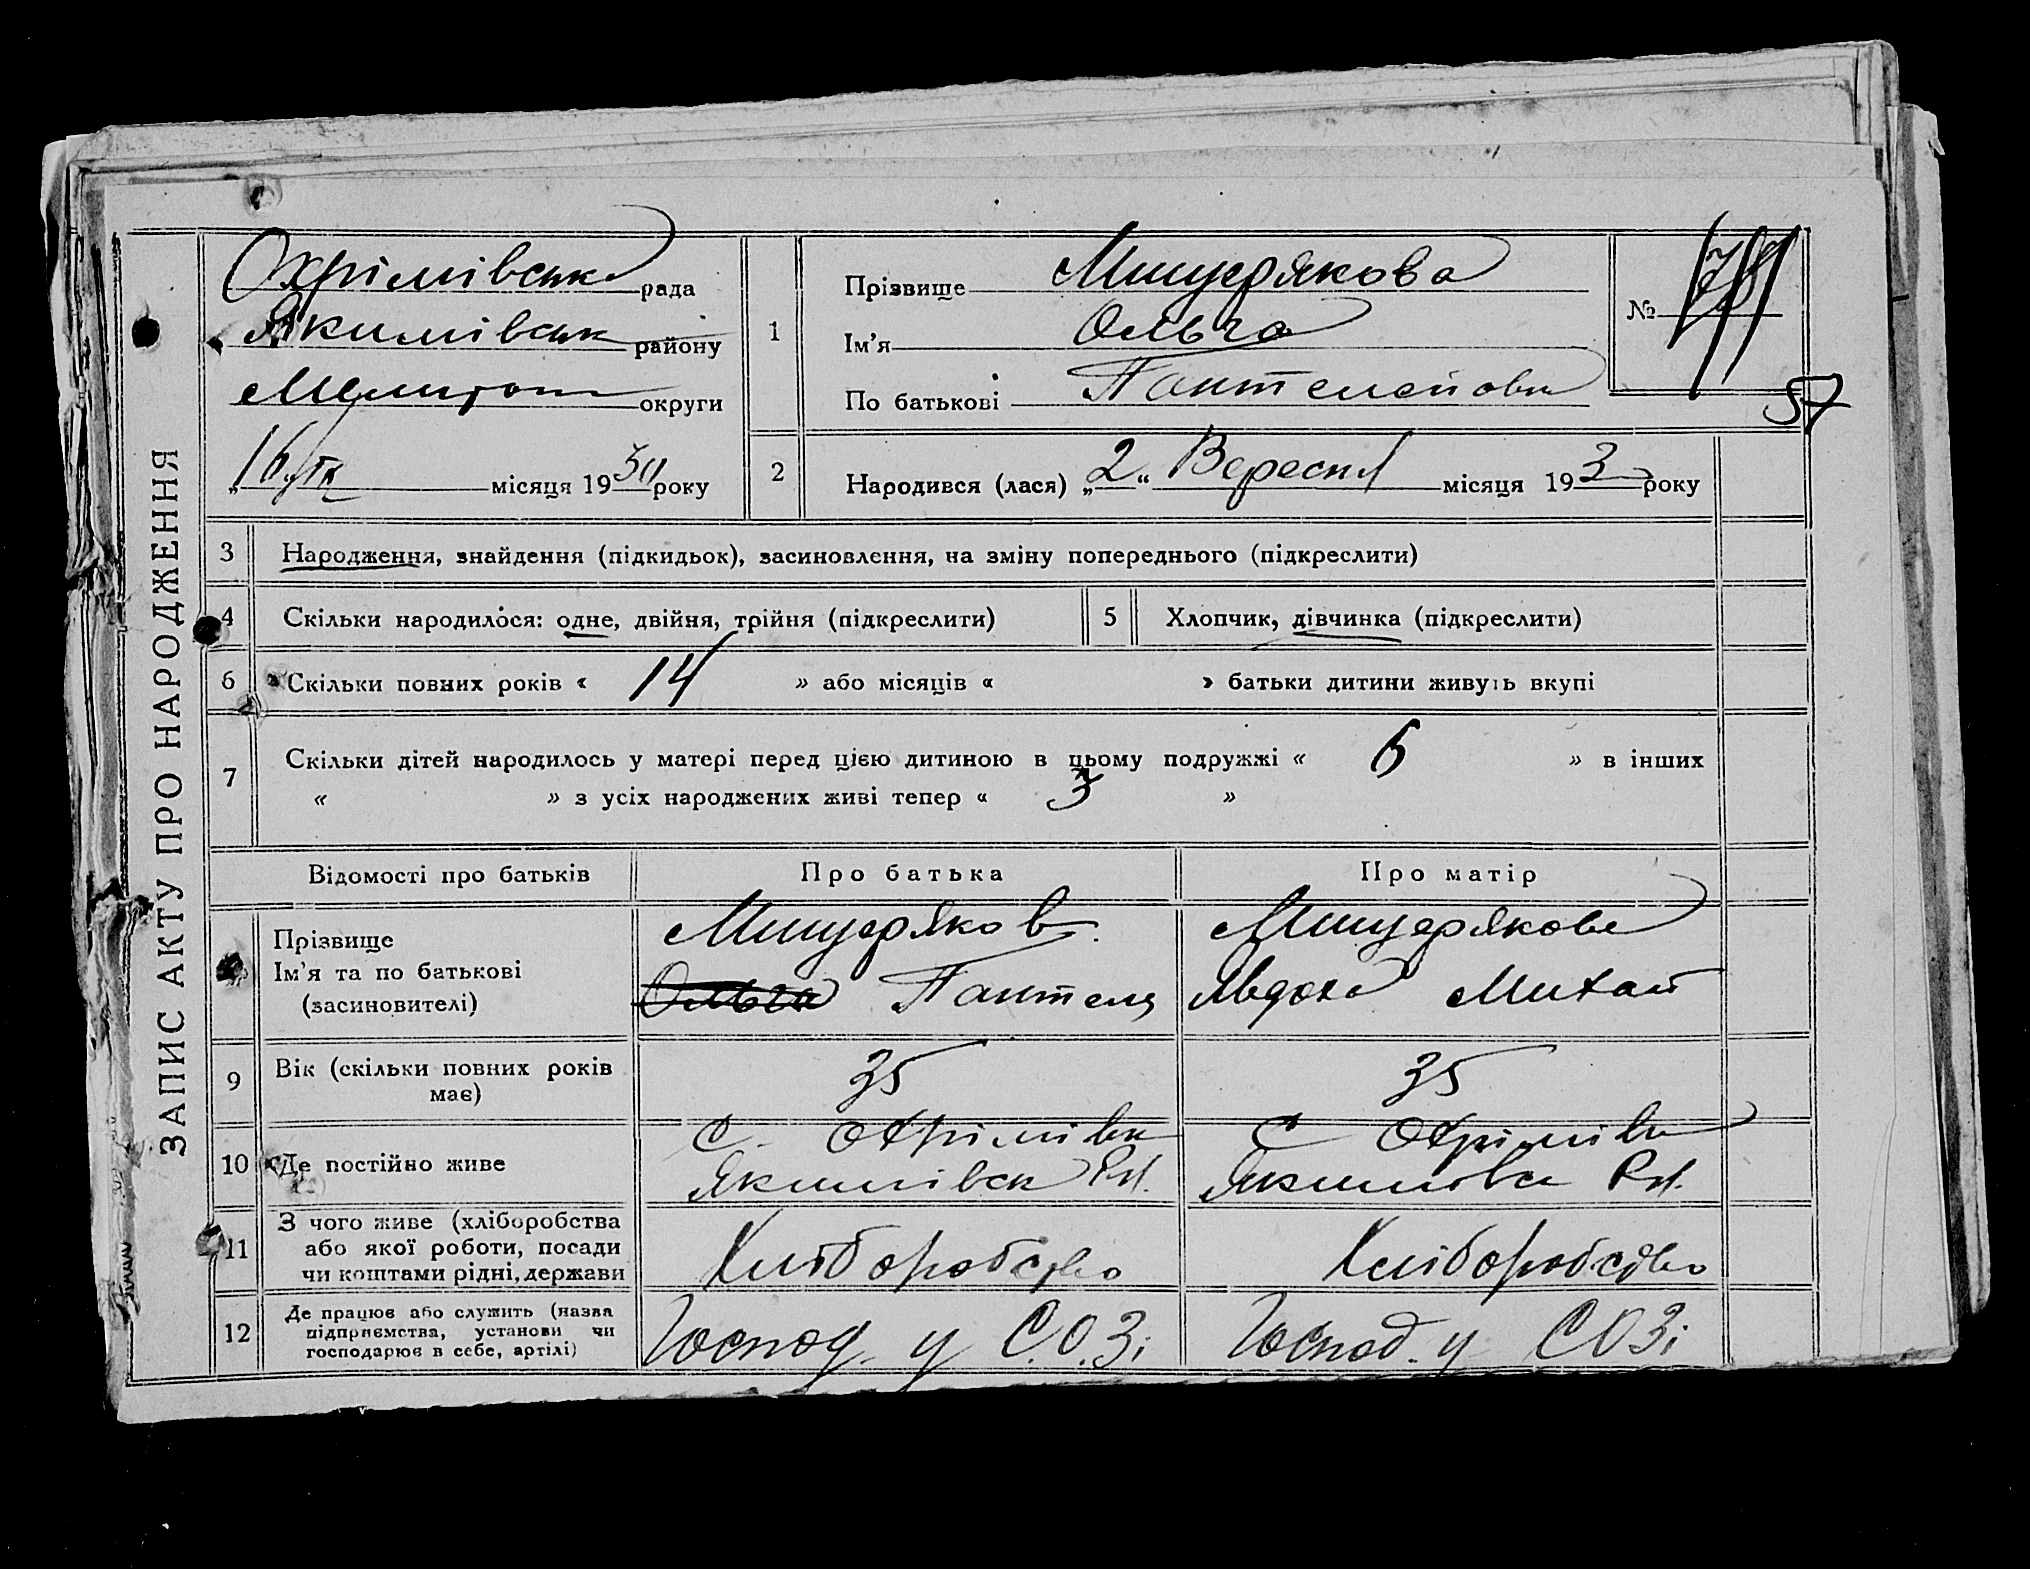 ЗАПИС АКТУ ПРО НАРОДЖЕННЯ
Охрімівська рада
Якимівськ району
Мелитоп округи
„16 місяця 1930 року
1
Прізвище Мищерякова
Ім'я Ольга
По батькові Пантелеїовн
№ 78
57
2
Народився (лася) „2“ Вересня місяця 193 року
3 Народження, знайдення (підкидьок), засиновлення, на зміну попереднього (підкреслити)
4 Скільки народилося: одне, двійня, трійня (підкреслити)
5 Хлопчик, дівчинка (підкреслити)
6 Скільки повних років « 14 » або місяців « » батьки дитини живуть вкупі
7 Скільки дітей народилось у матері перед цією дитиною в цьому подружжі « 6 » в інших
« » з усіх народжених живі тепер « 3 »
Відомості про батьків Про батька Про матір
Прізвище
Ім'я та по батькові
(засиновителі)
Мищеряков
Ольга Пантелей
Мищерякова
Явдоха Михайл
9 Вік (скільки повних років
має)
35 35
10 Де постійно живе
с. Охрімівк
Якимівск Рай.
с Охрімівк
Якимовск Рай.
11 З чого живе (хліборобства
або якої роботи, посади
чи коштами рідні, держави
Хліборобство Хліборобство
12 Де працює або служить (назва
підприємства, установи чи
господарює в себе, артілі)
Господ. у С.О.Зі Господ. у СОЗі